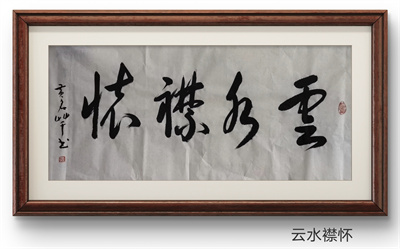 雲水襟懷
云水襟怀